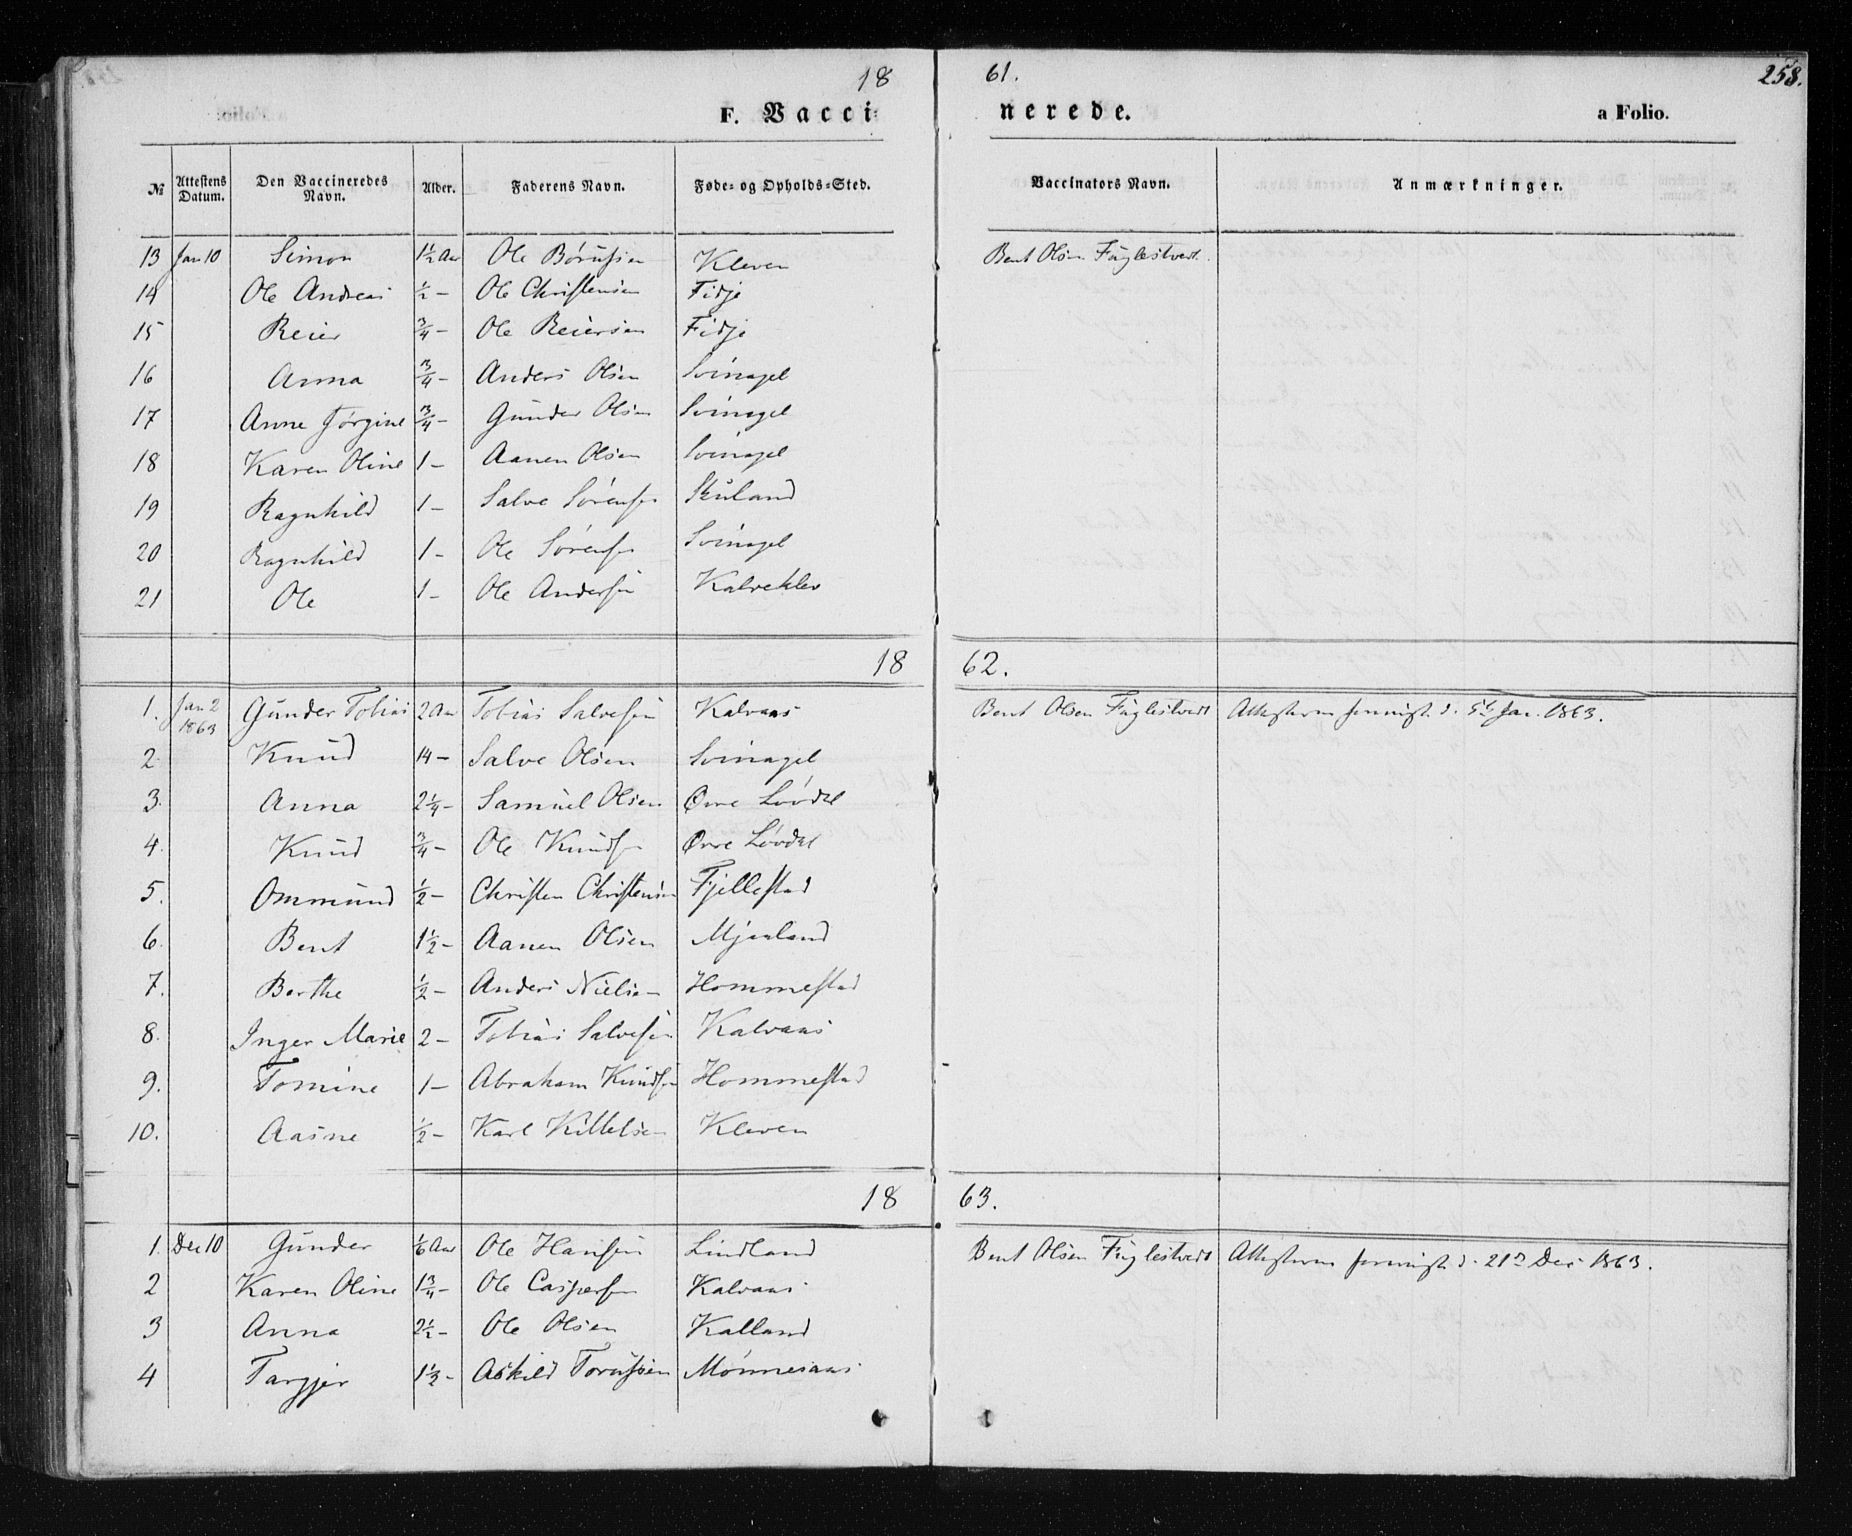 18 61. 258.
F. Vaccinerede. a Folio.
№ Attestens Datum. Den Vaccineredes Navn. Alder. Faderens Navn. Føde- og Opholds-Sted. Vaccinators Navn. Anmærkninger.
13 Jan 10 Simon 1½ Aar Ole Børufsen Kleven Bent Olsen Fuglestvedt
14 Ole Andreas ½ – Ole Christensen Fidje
15 Reier ¾ – Ole Reiersen Fidje
16 Anna ¾ – Anders Olsen Svinagel
17 Anne Jørgine ¾ – Gunder Olsen Svinagel
18 Karen Oline 1 – Aanen Olsen Svinagel
19 Ragnhild 1 – Salve Sørensen Skuland
20 Ragnhild 1 – Ole Sørensen Svinagel
21 Ole 1 – Ole Andersen Kalveklev
18 62.
1. Jan 2 1863 Gunder Tobias 2 Aar Tobias Salvesen Kalvaas Bent Olsen Fuglestvedt Attesterne d. 5te Jan. 1863.
2 Knud 14 – Salve Olsen Svinagel
3. Anna 2¼ – Samuel Olsen Øvre Løvdal
4. Knud ¾ – Ole Knudsen Øvre Løvdal
5. Ommund ½ – Christen Christensen Fjellestad
6. Bent 1½ – Aanen Olsen Mjaaland
7. Berthe ½ – Anders Nielsen Hommestad
8. Inger Marie 2 – Tobias Salvesen Kalvaas
9. Tomine 1 – Abraham Knudsen Hommestad
10. Aasne ½ – Karl Kittelsen Kleven
18 63.
1. Dec 10 Gunder ⅙ Aar Ole Hansen Lindland Bent Olsen Fuglestvedt Attesterne d. 21de Dec 1863.
2 Karen Oline 1¾ – Ole Caspersen Kalvaas
3 Anna 2½ – Ole Olsen Kalland
4 Targjer 1½ – Askild Torufsen Mønnesaas